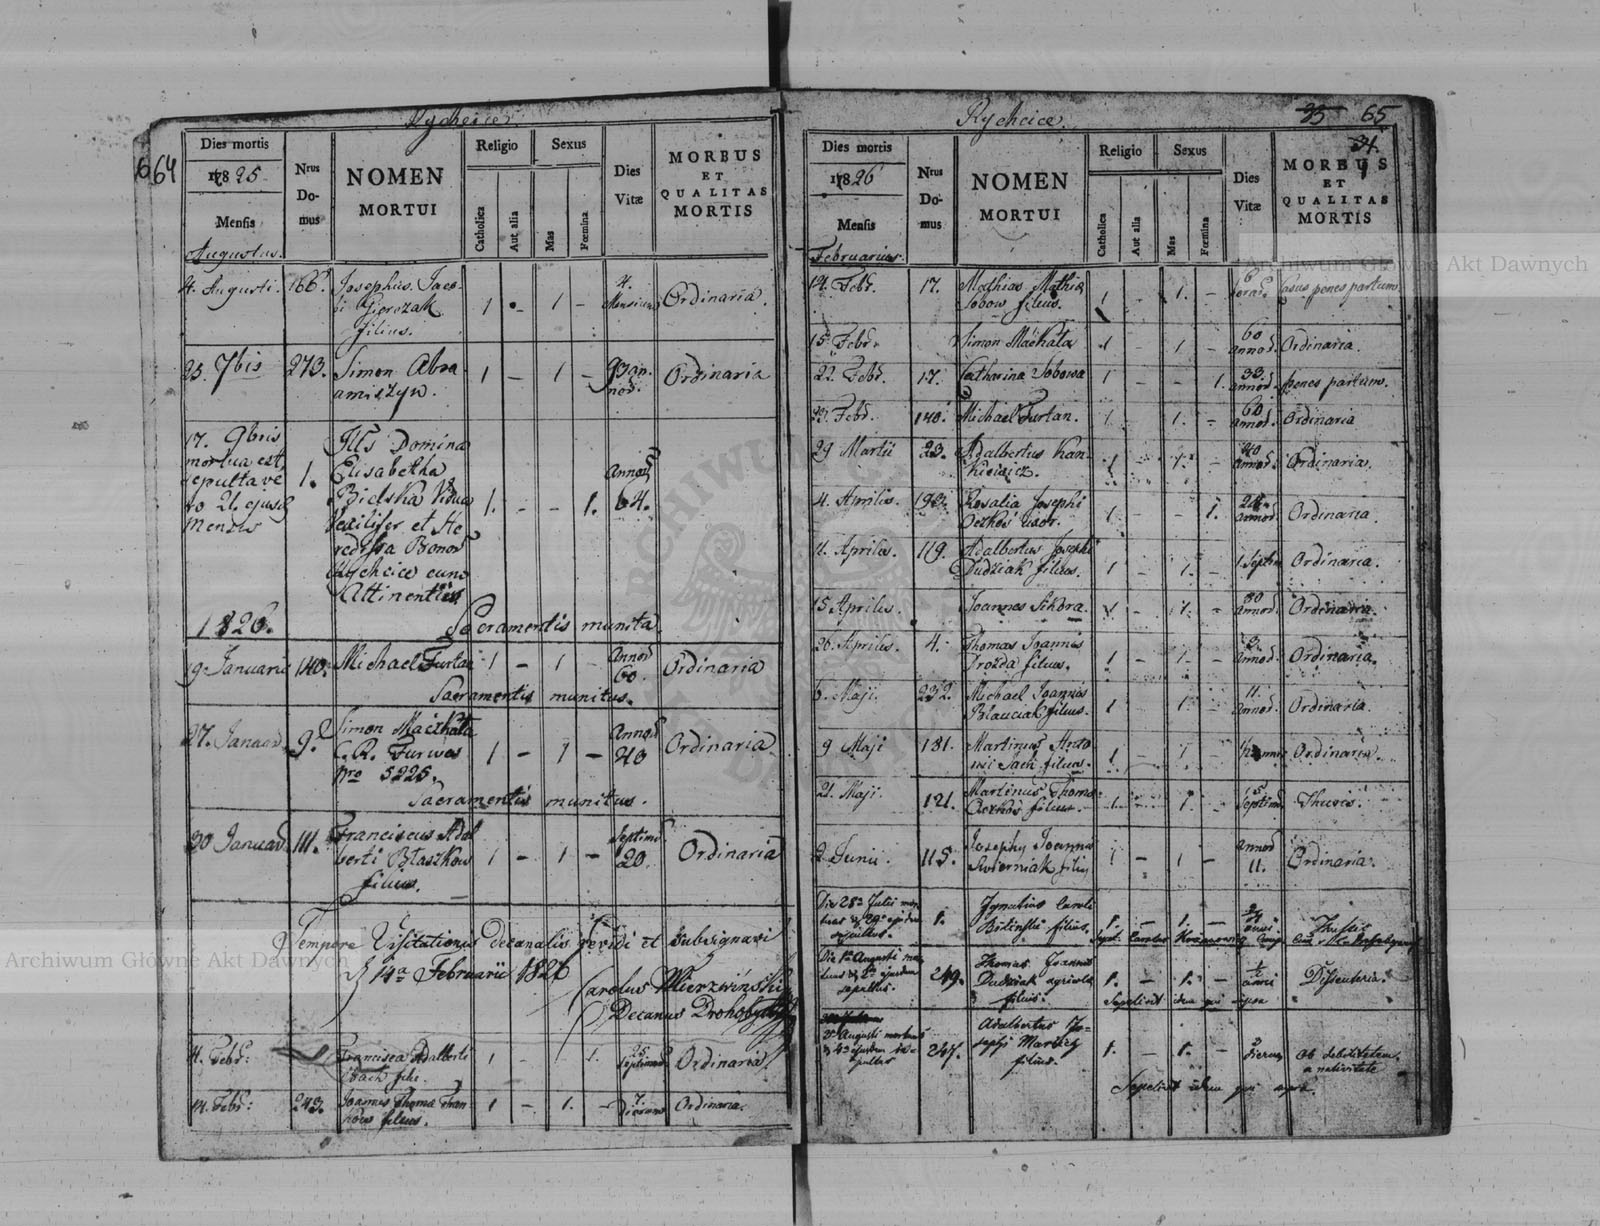 Rychcice
664
Dies mortis
1825
Mensis
Augustus.
Nrus
Do-
mus
NOMEN
MORTUI
Religio
Catholica
Aut alia
Sexus
Mas
Fœmina
Dies
Vitæ
MORBUS
ET
QUALITAS
MORTIS
4. Augusti. 166. Josephus Jaco- 1 - 1 - 4. Ordinaria.
bi
filius.
25. 7bis 273. Simon Abra 1 - 1 - Ordinaria
amiszyn.
17. 9bris Ills Domina
mortua est, Elisabetha
sepulta ve 1. Bielska Vidua 1. - - 1. 64.
ro 21. ejusd Vexilifer et He
Mensis redissa Bonor
Rychcice cum
Attinentiis
1826. Sacramentis munita.
19 Januarii 140. Michael Furtan 1 - 1 - Annor 60. Ordinaria
Sacramentis munitus.
27. Januar 9. Simon Maćkała 1 - 1 - Annor 40 Ordinaria
C. R. Furwes
Nro 5225.
Sacramentis munitus.
30 Januar 111. Franciscus Adal 1 - 1 - Septim 20. Ordinaria
berti Błaszkow
filius.
Tempore Visitationis decanalis vidi et subsignavi
14a Februarii 1826
Carolus Mierzwiński
Decanus Drohobyc
11. Febr: Francisca Adalberti 1 - - 1. 25 Septiman Ordinaria
filia.
14. Febr: 243. Joannes Thoma Fran 1 - 1. - 7. Dierum Ordinaria.
kow filius.
Rychcice.
35 65
34.
Dies mortis
1826
Mensis
Februarius.
Nrus
Do-
mus
NOMEN
MORTUI
Religio
Catholica
Aut alia
Sexus
Mas
Fœmina
Dies
Vitæ
MORBUS
ET
QUALITAS
MORTIS
14. Febr. 17. Mathias Mathia 1 - 1. - 6 horar. Casus penes partum.
Sobow filius.
15. Febr. Simon Maćkała 1 - 1 - 60 annor. Ordinaria.
22. Febr. 17. Catharina Sobowa 1 - - 1. 30. annor. penes partum.
23. Febr. 140. Michael Furtan. 1 - 1. - 60 annor. Ordinaria
29 Martii 23. Adalbertus Kan 1 - 1. - 40 annor. Ordinaria.
4. Aprilis. 193. Rosalia Josephi 1 - - 1. annor. Ordinaria.
uxor.
11. Aprilis. 119. Adalbertus Josephi 1 - 1. - 1 Septim Ordinaria.
Dudziak filius.
15 Aprilis. Joannes Sikora. 1 - 1. - 80 annor. Ordinaria.
26. Aprilis. 4. Thomas Joannis 1 - 1. - 3. annor. Ordinaria.
Drozda filius.
6. Maji. 232. Michael Joannis 1 - 1. - 11. annor. Ordinaria.
Blauciak filius.
9 Maji 181. Martinus Anto 1 - 1 - Ordinaria.
ni Sach filius.
21. Maji. 121. Martinus Thoma 1 - 1. - 15 Septim Thussis.
filius.
2 Junii. 115. Josephy Joannis 1 - 1 - Annor 11. Ordinaria.
Swierniak filiy
Die 28a Julii mor 1. Ignatius Caroli 1. - 1. - Thussis
tuus & 29a ejusdem filius.
sepultus.
Die 1a Augusti mor 249. Thomas Joannis 1. - 1. - anni Dissenteria.
tuus & 2a ejusdem Dudziak agricola
sepultus. filius. Sepelivit idem qui supra
3a Augusti mortuus 247. Adalbertus Jo= 1. - 1. - dierum Ob debilitatem
& 4a ejusdem se- sephi a nativitate
pultus filius.
Sepelivit idem qui supra.
Archiwum Główne Akt Dawnych
Archiwum Główne Akt Dawnych